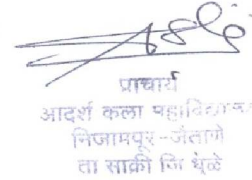 प्राचार्य
आदर्श कला महाविद्यालय
निजामपूर-जैताणे
ता साक्री जि धुळे